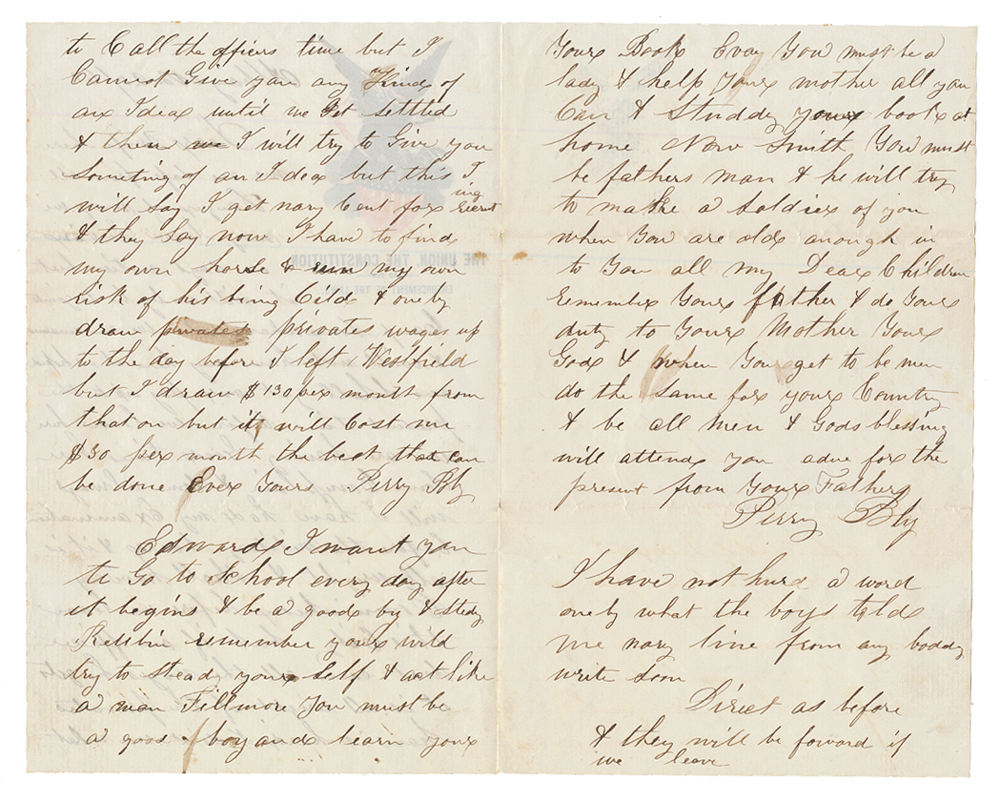 to Call the officers time but I
Cannot Give you any Kind of
an Idea until we Get settled
& then we I will try to Give you
someting of an Idea but this I
will say I get nary Cent for recruting
& they say now I have to find
my own horse & run my own
risk of his being Cild & only
draw privates privates wages up
to the day before I left Westfield
but I draw $130 per month from
that on but it will Cost me
$30 per month the best that can
be done Ever Yours Perry Bly
Edward I want you
to Go to school every day after
it begins & be a good by & study
remember your wild
try to steady your self & act like
a man Fillmore You must be
a good boy and learn your
Your Book Evay You must be a
lady & help Your mother all you
Can & Studdy your book at
home Now Smith You must
be fathers man & he will try
to make a soldier of you
when You are old anough in
to You all my Dear Children
remember Your father & do Your
duty to Your Mother Your
God & when You get to be men
do the same for your Country
& be all men & Gods blessing
will attend you adue for the
present from Your Father
Perry Bly
I have not hurd a word
only what the boys told
me nary line from any boddy
write soon
Direct as before
& they will be forward if
we leave
THE UNION, THE CONSTITUTION